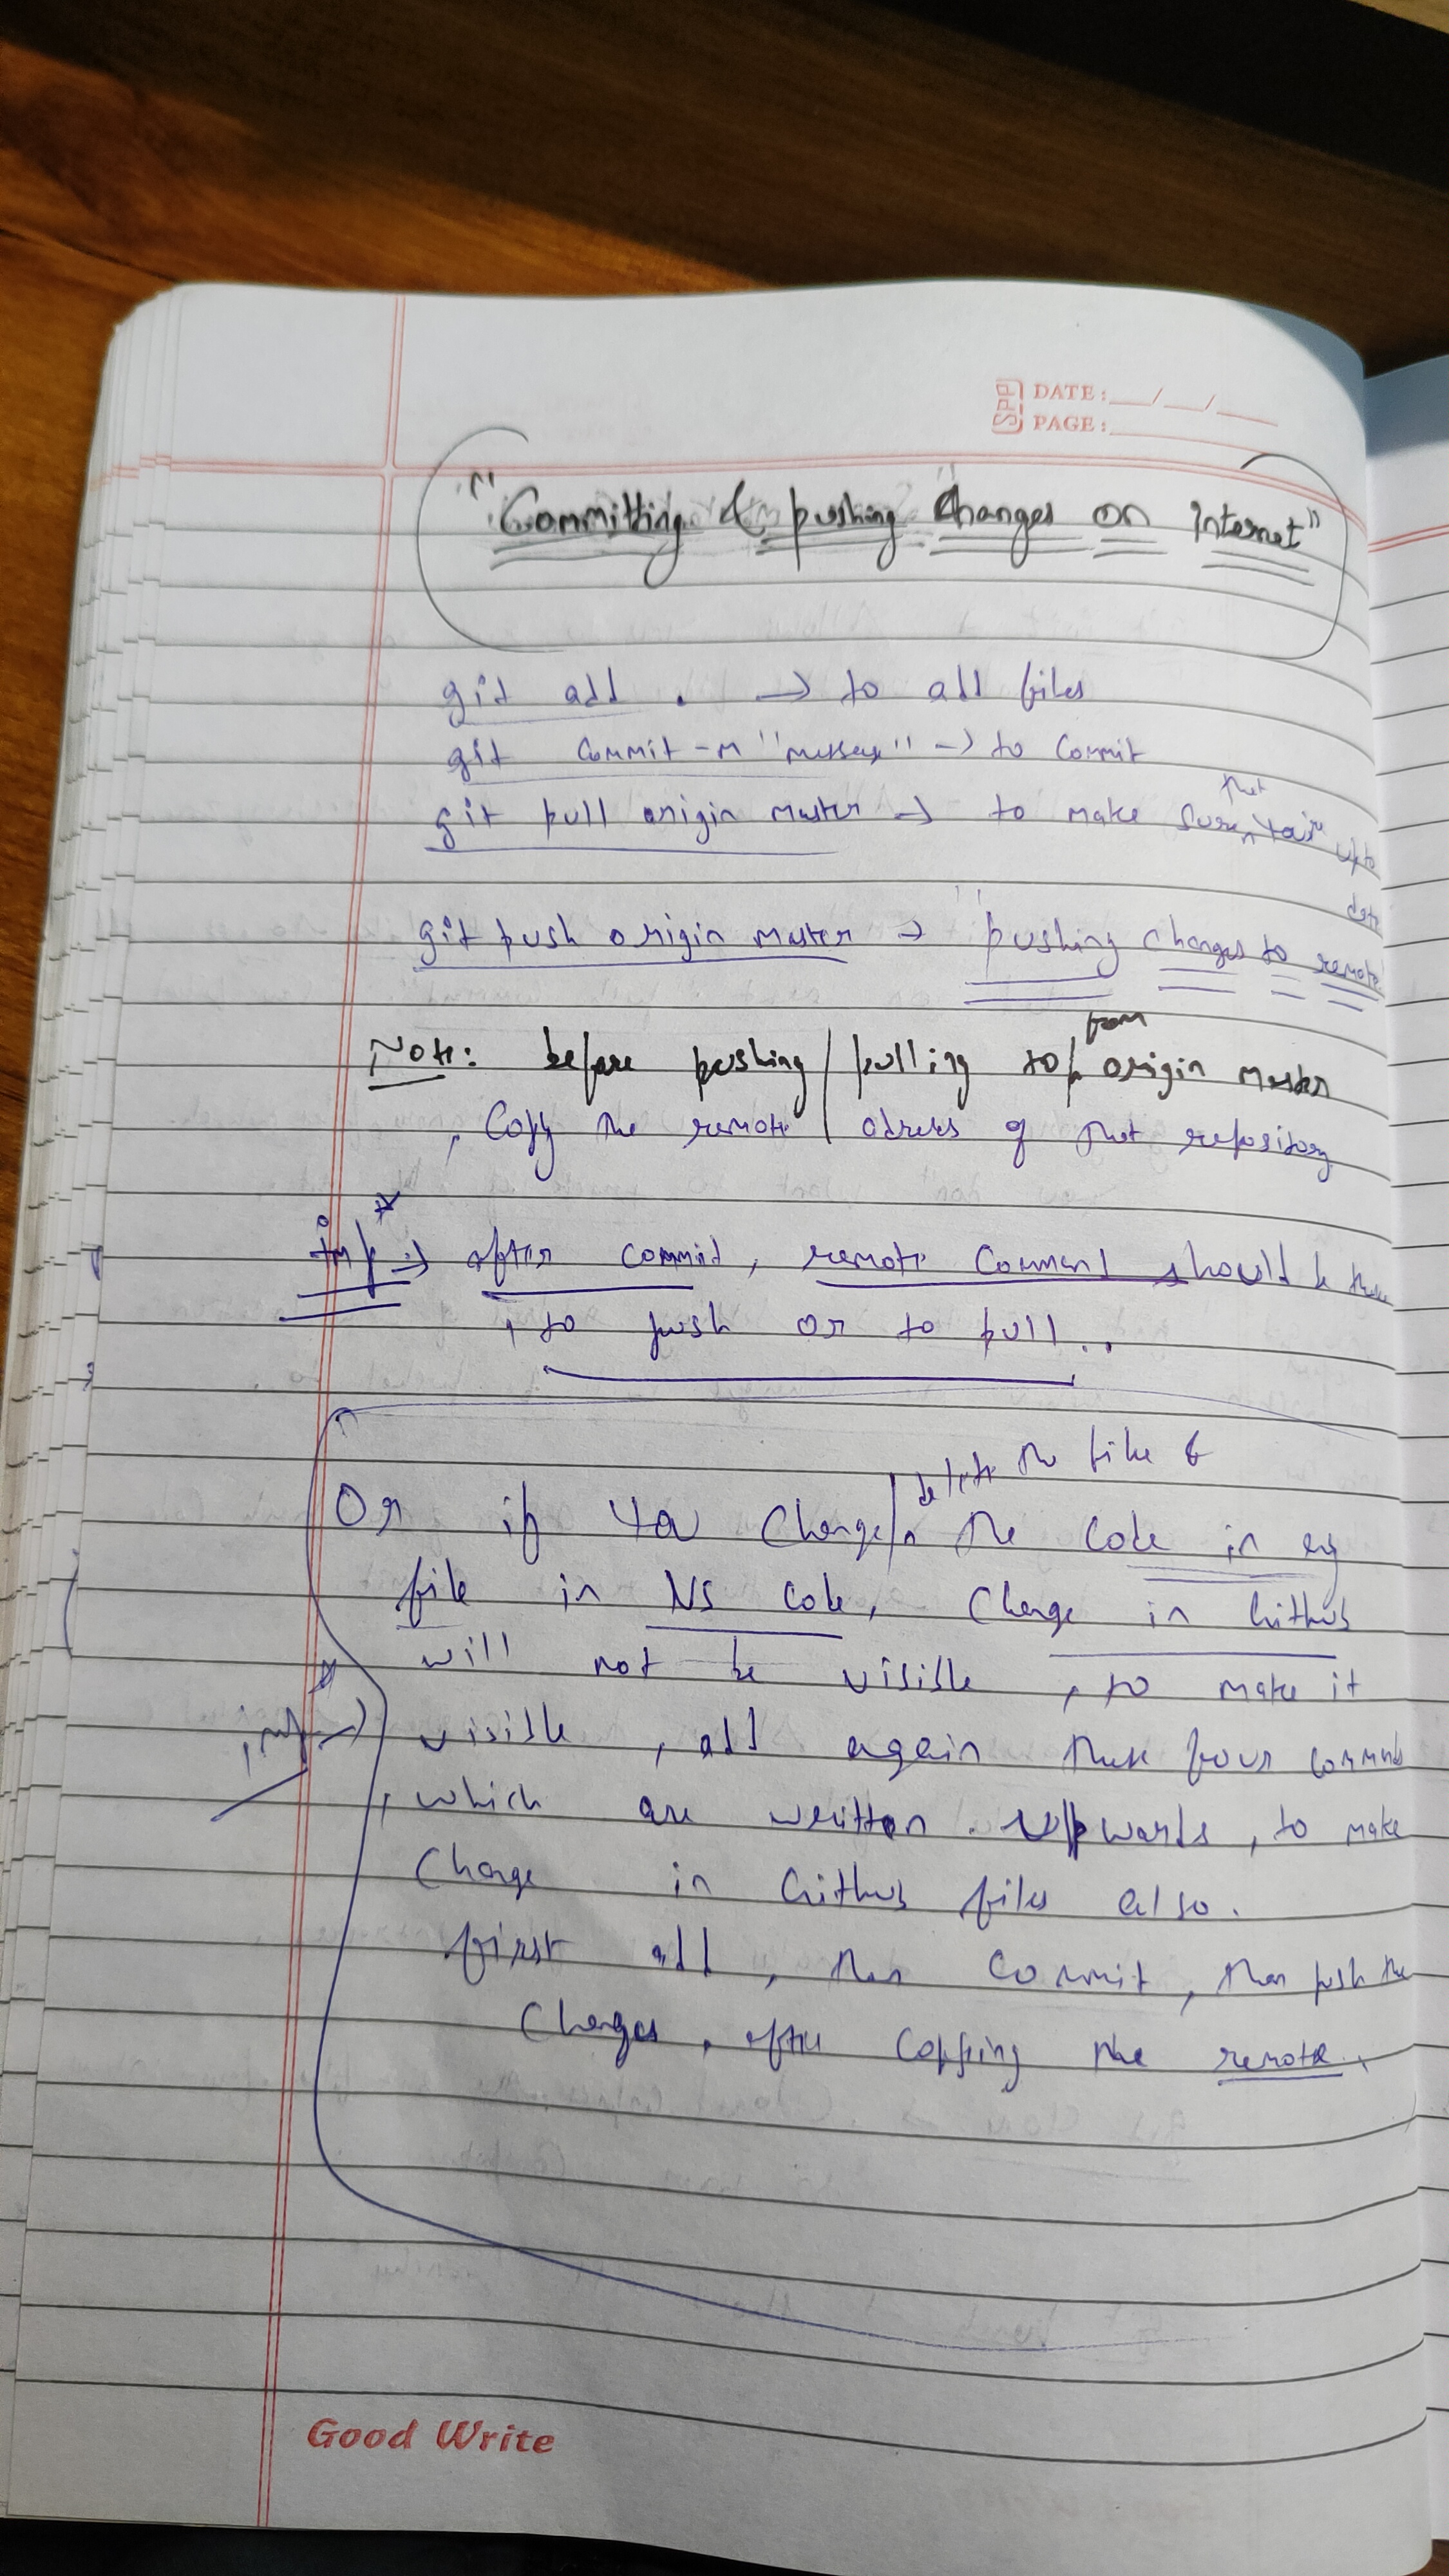 SPP DATE: __/__/__
PAGE:
"Committing & pushing Changes on Internet"
git add . → to all files
git commit -m "message" → to commit
git pull origin master → to make sure that you're upto date
git push origin master → pushing changes to remote
Note: before pushing / pulling to / from origin master
, Copy the remote adress of that repository
imp → after commit, remote command should be there
, to push or to pull..
Or if you change / delete the file & the code in any
file in VS code, change in Github
will not be visible, to make it
imp → visible, add again these four commands
, which are written upwards, to make
change in Github files also.
first add, then commit, then push the
changes, after copying the remote.
Good Write